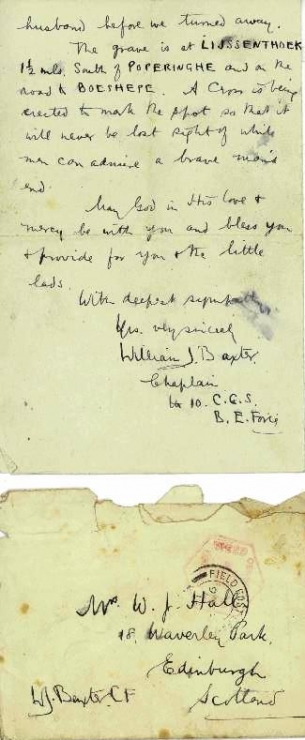 husband before we turned away.
The grave is at LIJSSENTHOEK
1½ mls. South of POPERINGHE and on the
road to BOESHEPE. A Cross is being
erected to mark the spot so that it
will never be lost sight of while
men can admire a brave man's
end.
May God in His love &
mercy be with you and bless you
& provide for you & the little
lads.
With deepest sympathy
Yrs. very sincerely
William J. Baxter.
Chaplain
10. C.C.S.
B. E. Force
FIELD POST
Mrs W. J. Hall
18, Waverley Park,
Edinburgh
Scotland
WJ. Baxter. CF